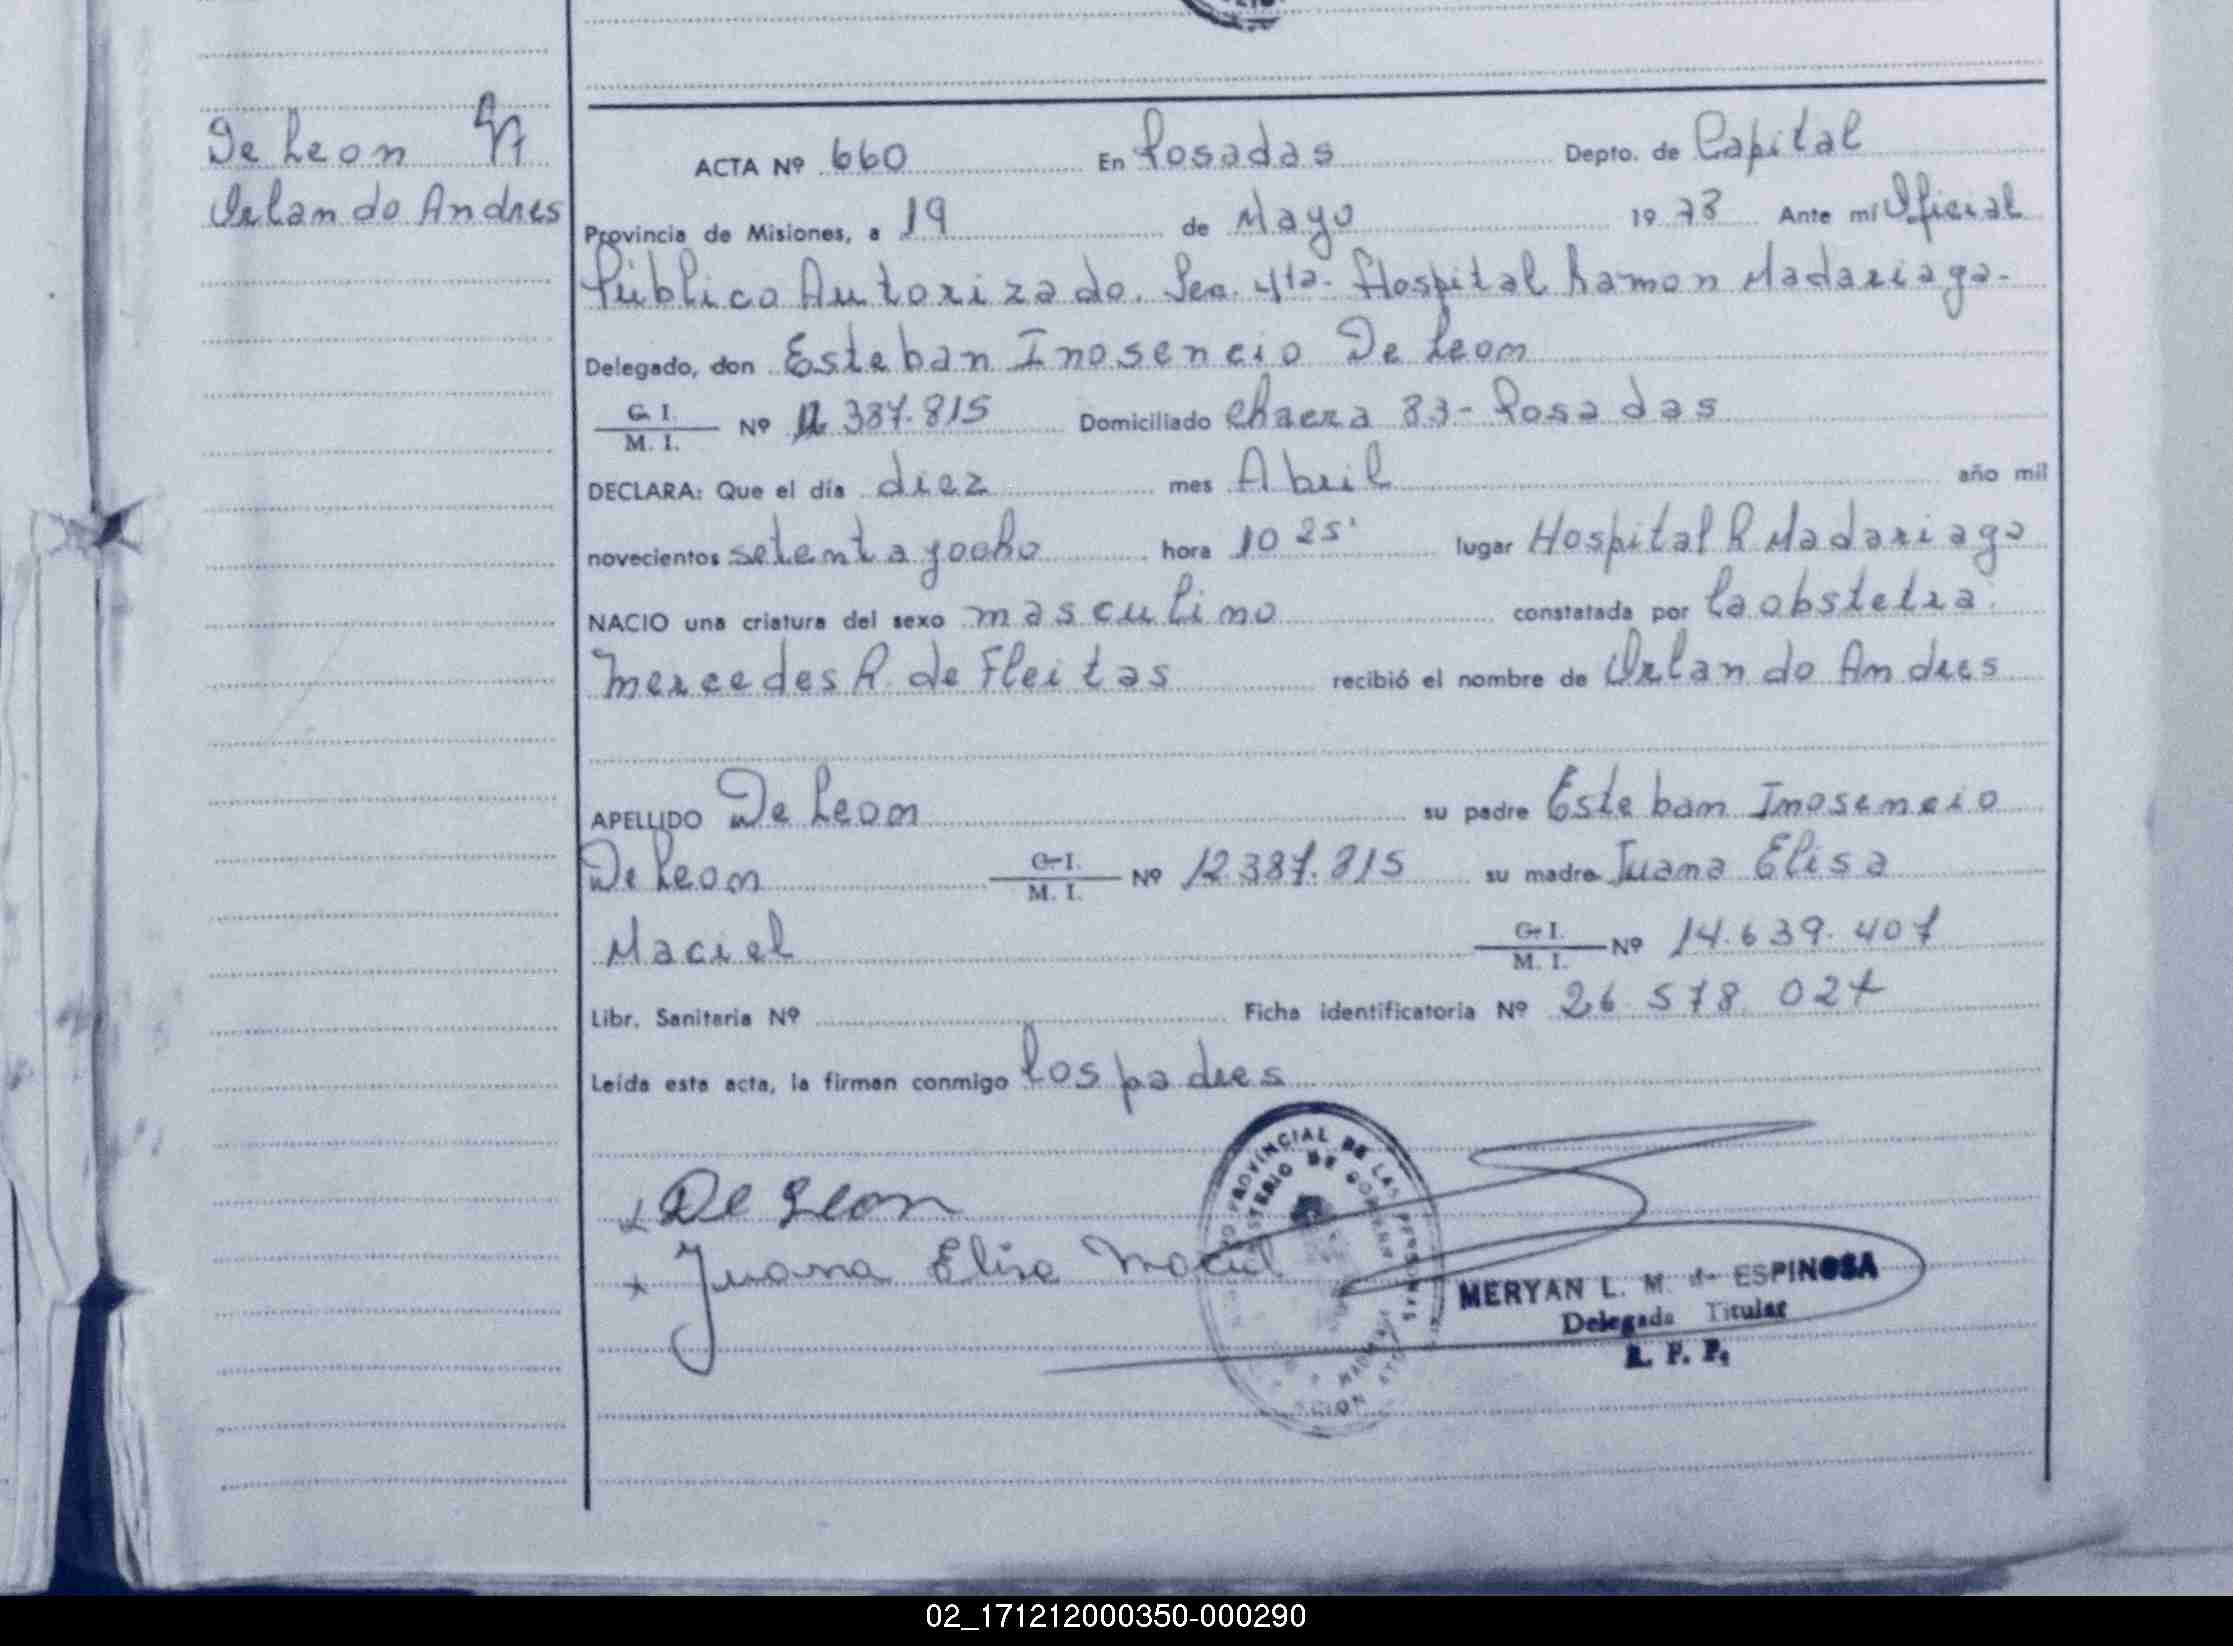 De Leon
Orlando Andres
ACTA Nº 660 En Posadas Depto. de Capital
Provincia de Misiones, a 19 de Mayo 19 78 Ante mí Oficial
Público Autorizado. Sec. 4ta. Hospital Ramon Madariaga-
Delegado, don Esteban Inosencio De Leon
C. I.
M. I. Nº 12 387.815 Domiciliado Chacra 83- Posadas
DECLARA: Que el día diez mes Abril año mil
novecientos setenta y ocho hora 10 25' lugar Hospital R Madariaga
NACIO una criatura del sexo masculino constatada por la obstetra.
Mercedes R. de Fleitas recibió el nombre de Orlando Andres
APELLIDO De Leon su padre Esteban Inosencio
De Leon C. I.
M. I. Nº 12 387.815 su madre Juana Elisa
Maciel C. I.
M. I. Nº 14.639.407
Libr. Sanitaria Nº Ficha identificatoria Nº 26 578 027
Leída esta acta, la firman conmigo los padres
x De Leon
x Juana Elisa Maciel
PROVINCIAL DE LAS PERSONAS
MINISTERIO DE GOBIERNO
MERYAN L. M. de ESPINOSA
Delegada Titular
R. P. P.
02_171212000350-000290